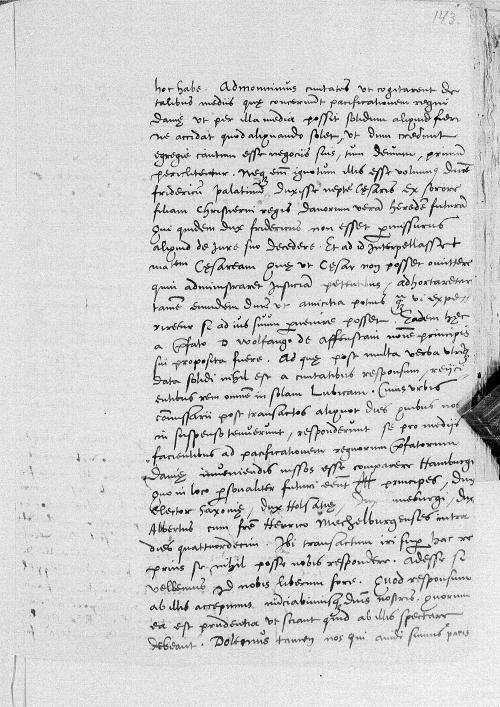 143.
hoc habe. Admonuimus civitates ut cogitarent de
talibus mediis quę concernunt pacificationem regni
Danię ut per illa media possit solidum aliquid fieri
ne accidat quod aliquando solet, ut dum credunt
egregie cautum esse negociis suis, tum demum, primum
periclitentur. Neq enī ignotum illis esse volumus Ducē
fridericum palatinum, duxisse neptē Cęsaris ex sorore
filiam Christierni regis danorum verā heredem futurā
qui quidem dux fridericus non esset permissurus
aliquid de iure suo decedere. Et ad id interpellasset
matem Cęsaream quę ut Cęsar non posset omittere
quin administraret iusticiam petentibus, adhortaretur
tamen eundem ducē ut amicitia potius q vi expe-
riretur si ad ius suum pervenire posset. Eadem hęc
a p̄fato D wolfango de Affenstain noīe principis
sui proposita fuere. Ad quę post multa verba ultro
data solidi nihil est a civitatibus responsum, reiici-
entibus rem omnem in solam Lubicam. Cuius urbis
comissarii post transactos aliquot dies quibus nos
in suspenso tenuerunt, responderunt se pro mediis
facientibus ad pacificationem regnorum p̄fatorum
Danię inveniendis missos esse comparere Hamburgi
quo in loco personaliter futuri eēnt principes, dux
Elector Saxonię, dux Holsatię, meburgi, dux
Albertus cum frē Henrico Mechelburgenses intra
dies quattuordecim. Ibi transactum iri super hac re
prius se nihil posse nobis respondere. Adesse si
vellemus id nobis liberum fore. Quod responsum
ab illis accepimus iudicabimusq dnis nostris. quorum
ea est prudentia ut sciant quid ab illis spectare
debeant. Dolemus tamen nos qui audi sumus pacis